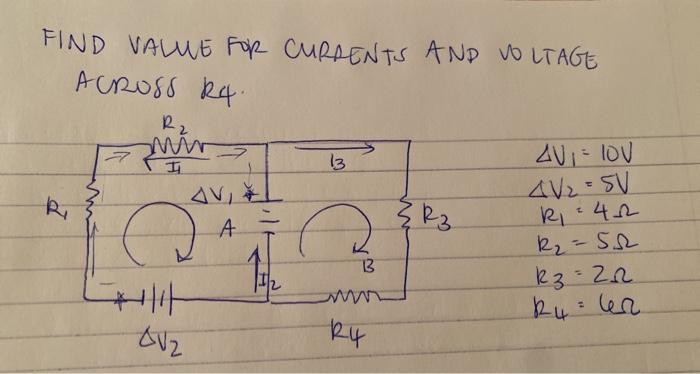 FIND VALUE FOR CURRENTS AND VOLTAGE
ACROSS R4.
R2
I1
I3
ΔV1
R1
A
R3
B
I2
ΔV2
R4
ΔV1 = 10V
ΔV2 = 5V
R1 = 4Ω
R2 = 5Ω
R3 = 2Ω
R4 = 6Ω